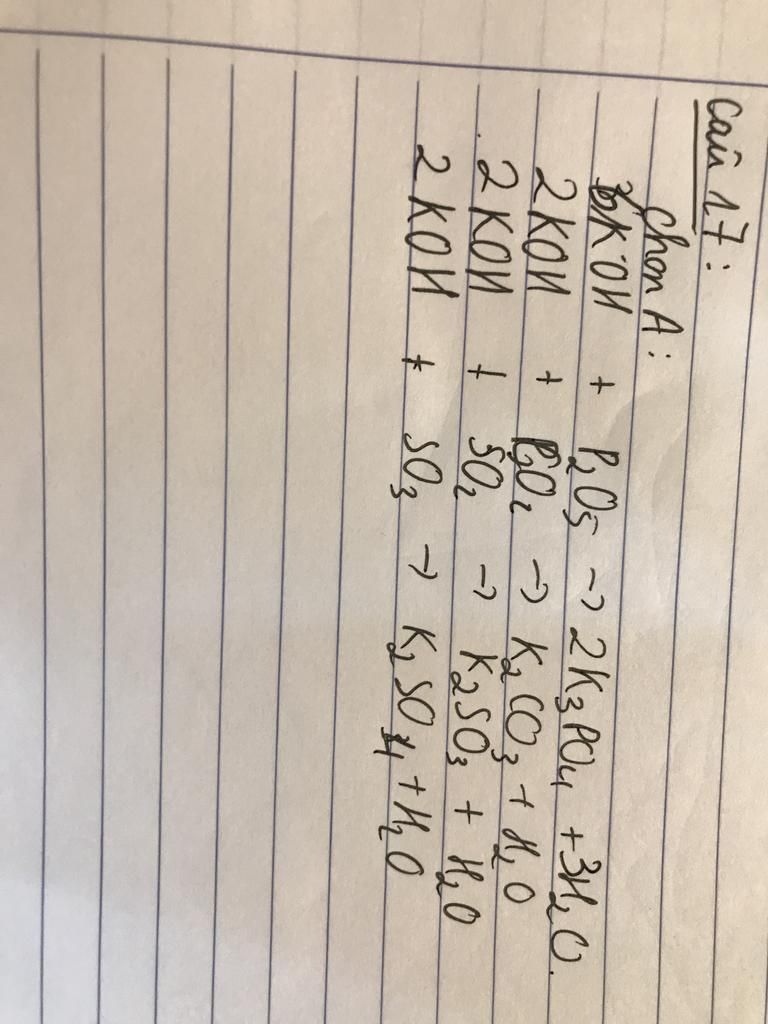 Câu 17:
Chọn A:
6KOH + P₂O₅ → 2K₃PO₄ + 3H₂O.
2KOH + CO₂ → K₂CO₃ + H₂O
2KOH + SO₂ → K₂SO₃ + H₂O
2KOH + SO₃ → K₂SO₄ + H₂O